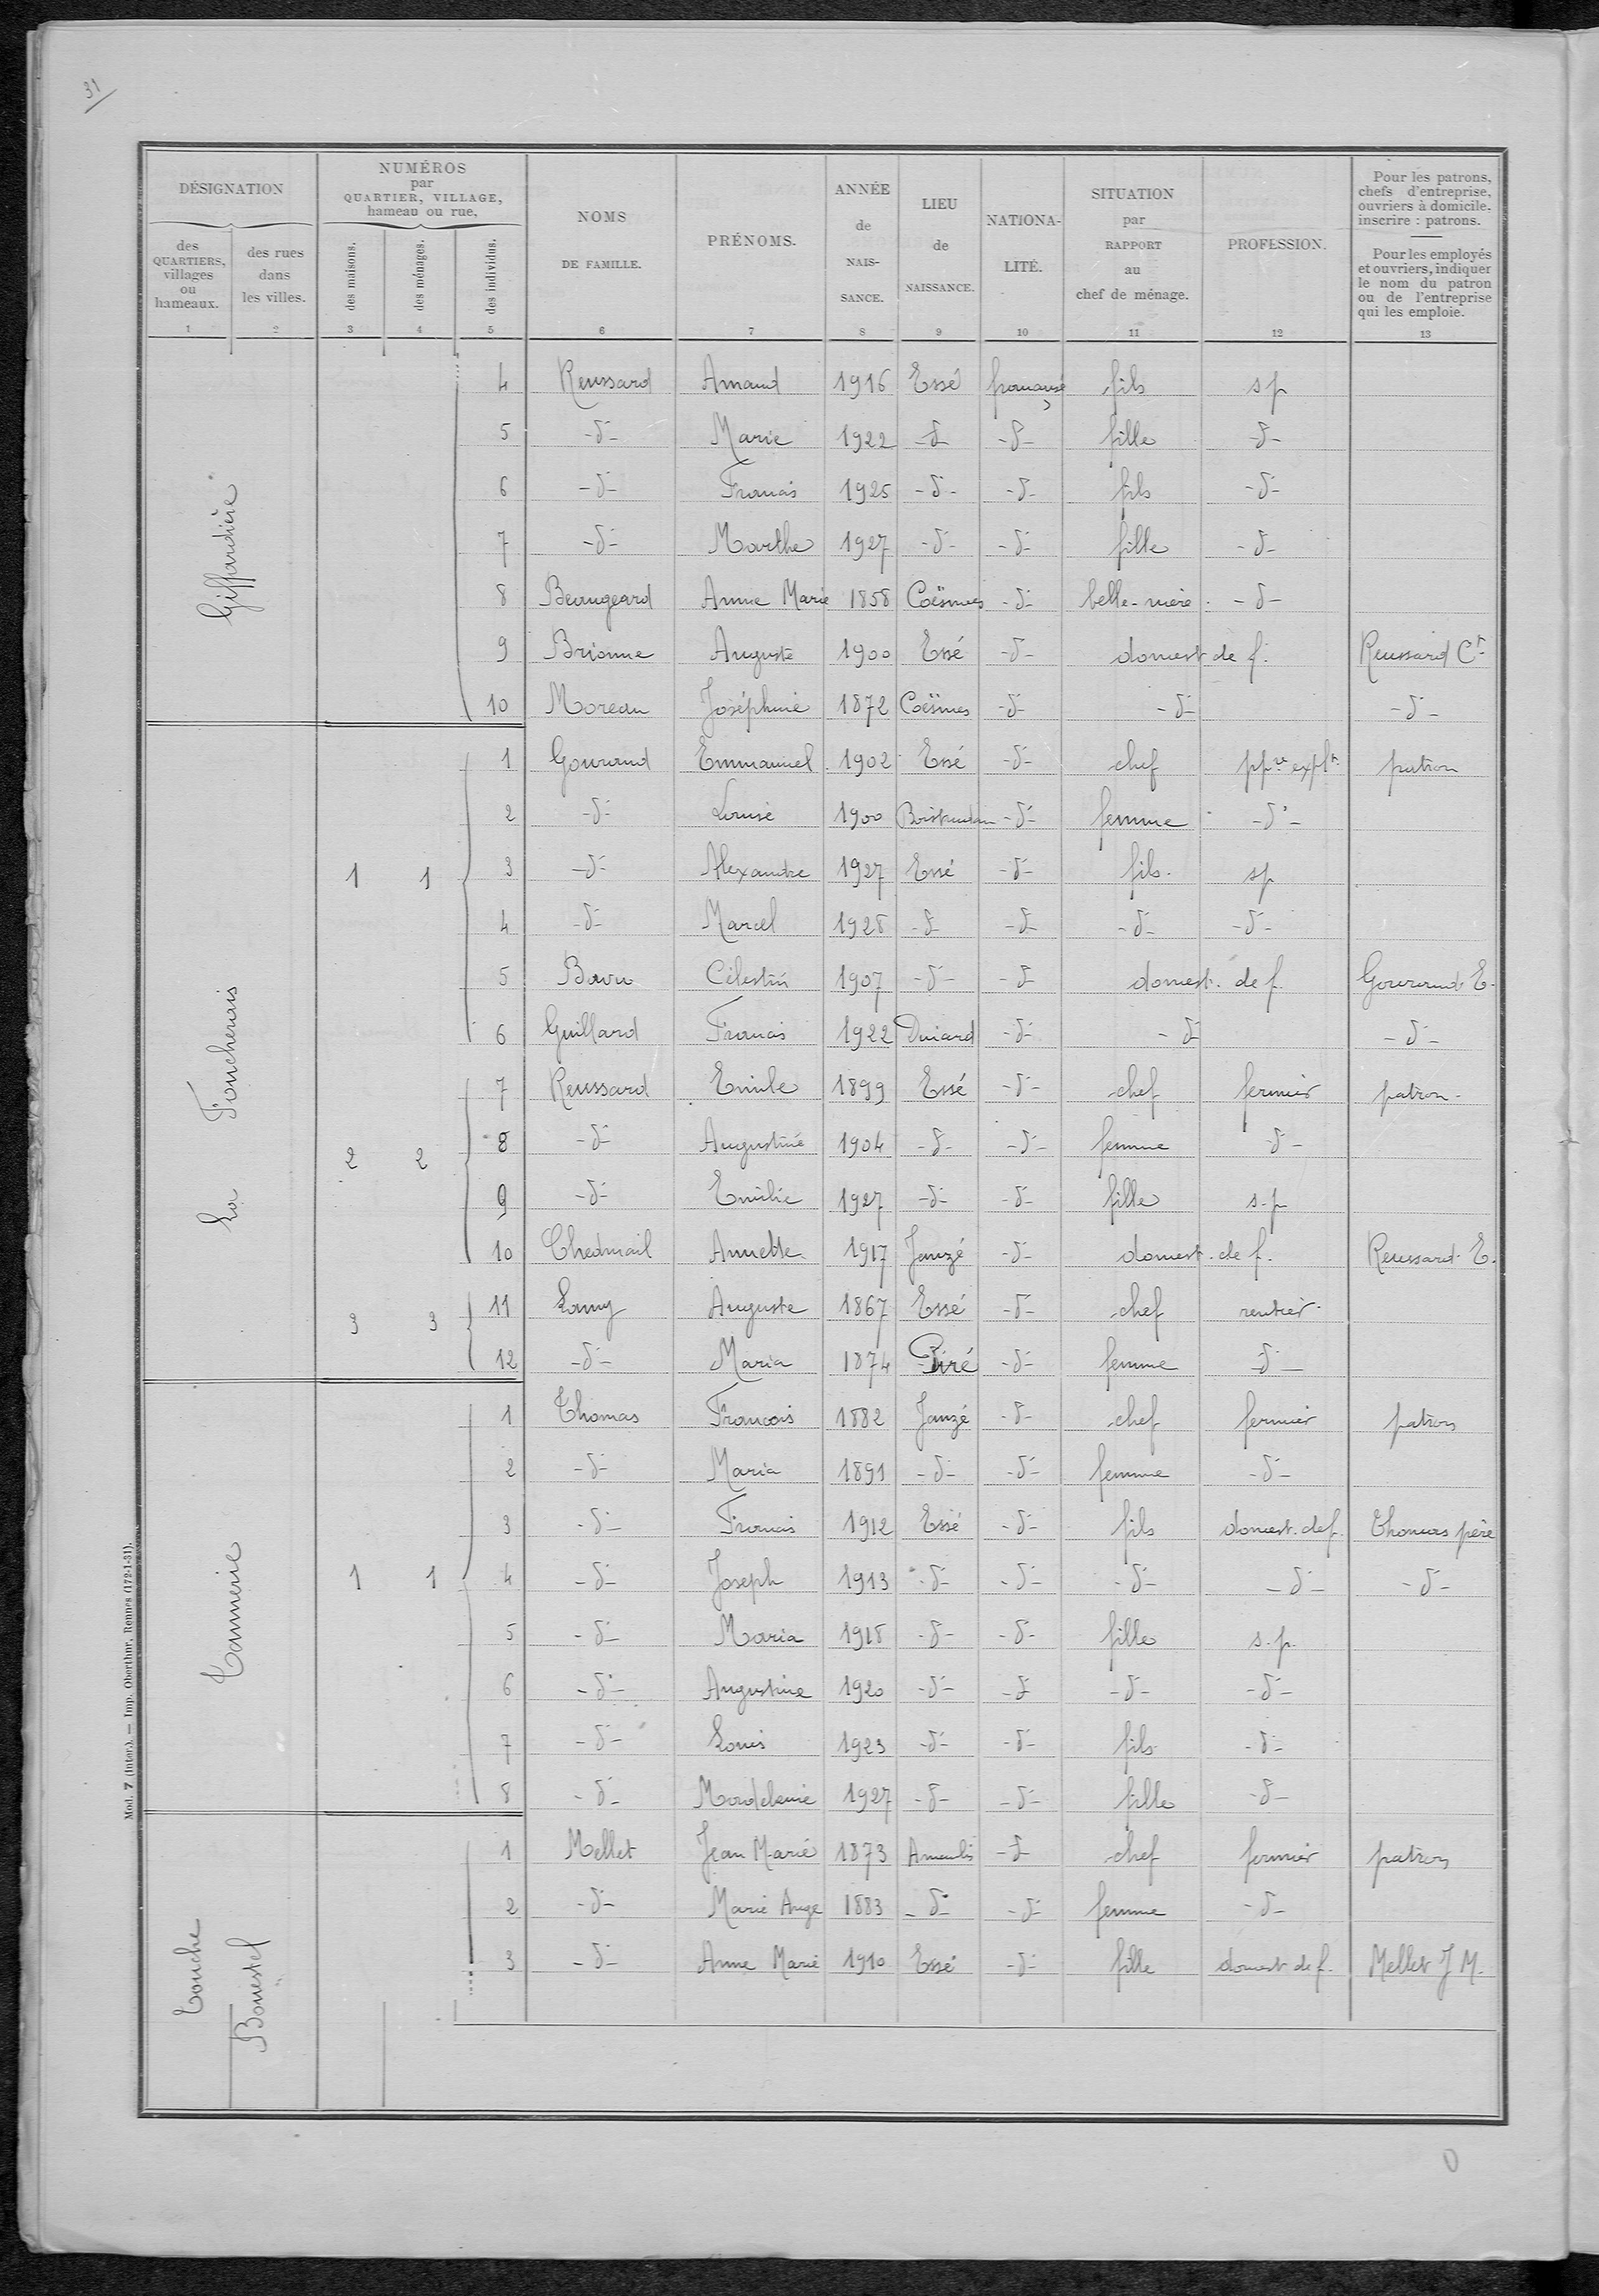 31
DÉSIGNATION
NUMÉROS
par
QUARTIER, VILLAGE,
hameau ou rue.
des QUARTIERS, villages ou hameaux.
des rues dans les villes.
des maisons.
des ménages.
des individus.
NOMS DE FAMILLE.
PRÉNOMS.
ANNÉE de NAIS-SANCE.
LIEU de NAISSANCE.
NATIONA-LITÉ.
SITUATION par RAPPORT au chef de ménage.
PROFESSION.
Pour les patrons, chefs d'entreprise, ouvriers à domicile, inscrire : patrons.
Pour les employés et ouvriers, indiquer le nom du patron ou de l'entreprise qui les emploie.
1 2 3 4 5 6 7 8 9 10 11 12 13
Giffardière
4 Reussard Amand 1916 Essé française fils sp
5 -d- Marie 1922 -d- -d- fille -d-
6 -d- Francis 1925 -d- -d- fils -d-
7 -d- Marthe 1927 -d- -d- fille -d-
8 Beaugeard Anne Marie 1858 Coësmes -d- belle-mère -d-
9 Brionne Auguste 1900 Essé -d- domest de f. Reussard Ct
10 Moreau Joséphine 1872 Coësmes -d- -d- -d-
La Foucherais
1 Gouraud Emmanuel 1902 Essé -d- chef ppre explt patron
2 -d- Louise 1900 Boistrudan -d- femme -d-
1 1 3 -d- Alexandre 1927 Essé -d- fils sp
4 -d- Marcel 1928 -d- -d- -d- -d-
5 Célestin 1907 -d- -d- domest. de f. Gouraud E.
6 Guillard Francis 1922 Dinard -d- -d- -d-
7 Reussard Emile 1899 Essé -d- chef fermier patron
8 -d- Augustine 1904 -d- -d- femme -d-
2 2 9 -d- Emilie 1927 -d- -d- fille s.p
10 Chedmail Annette 1917 Janzé -d- domest. de f. Reussard E.
3 3 11 Lamy Auguste 1867 Essé -d- chef rentier
12 -d- Maria 1874 Piré -d- femme -d-
Tannerie
1 Thomas Francois 1882 Janzé -d- chef fermier patron
2 -d- Maria 1891 -d- -d- femme -d-
3 -d- Francis 1912 Essé -d- fils domest. de f. Thomas père
1 1 4 -d- Joseph 1913 -d- -d- -d- -d- -d-
5 -d- Maria 1918 -d- -d- fille s.p.
6 -d- Augustine 1920 -d- -d- -d- -d-
7 -d- Louis 1923 -d- -d- fils -d-
8 -d- Madeleine 1927 -d- -d- fille -d-
Touche Bourstel
1 Mellet Jean Marie 1873 Amanlis -d- chef fermier patron
2 -d- Marie Ange 1883 -d- -d- femme -d-
3 -d- Anne Marie 1910 Essé -d- fille domest de f. Mellet J M.
Mod. 7 (Inter.). — Imp. Oberthur, Rennes (172-1-31).